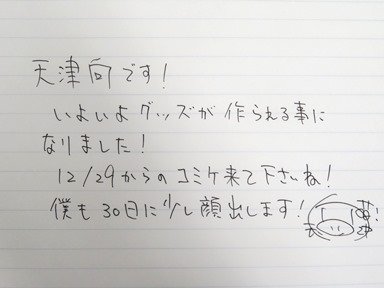 天津向です!
いよいよグッズが作られる事に
なりました!
12/29からのコミケ来て下さいね!
僕も30日に少し顔出します!